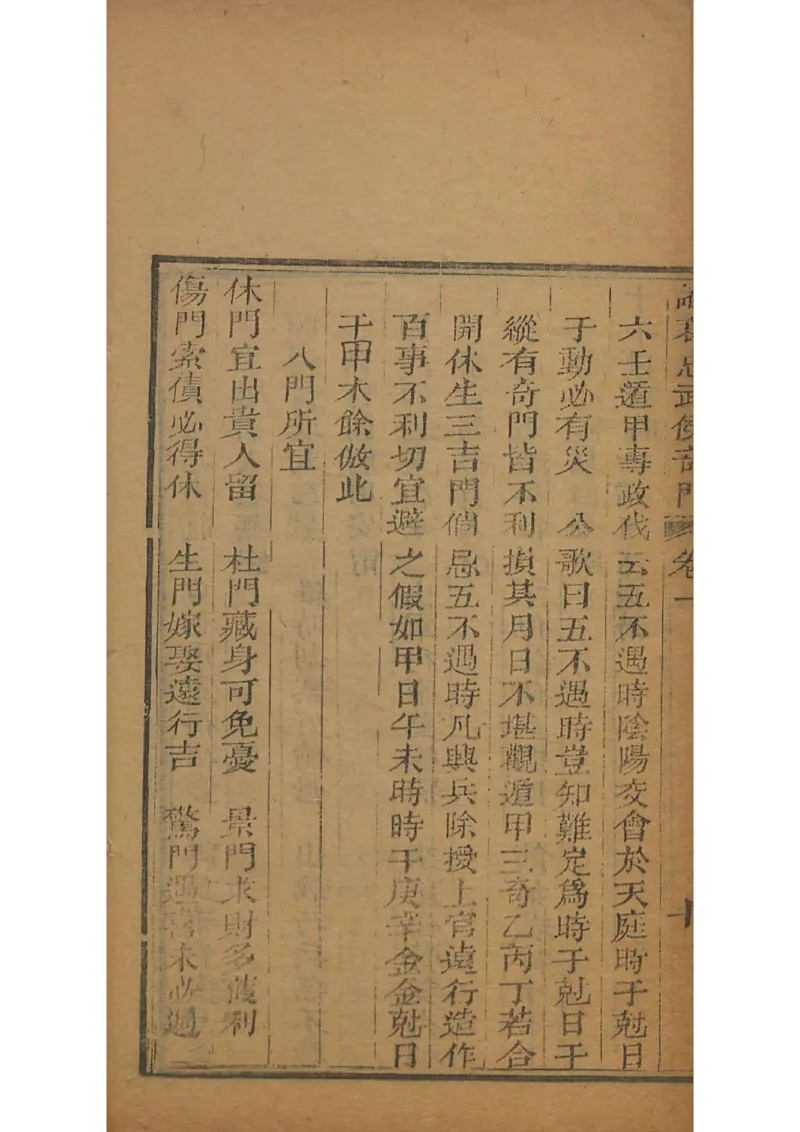 諸葛忠武侯奇門 卷一 十
六壬遁甲專政伐云五不遇時陰陽交會於天庭時干尅日
干動必有災 公歌曰五不遇時豈知難定爲時干尅日干
縱有奇門皆不利損其月日不堪觀遁甲三奇乙丙丁若合
開休生三吉門倘忌五不遇時凡興兵除授上官遠行造作
百事不利切宜避之假如甲日午未時時干庚辛金金尅日
干甲木餘倣此
八門所宜
休門宜出貴人留 杜門藏身可免憂 景門求財多獲利
傷門索債必得休 生門嫁娶遠行吉 驚門遇喜未必